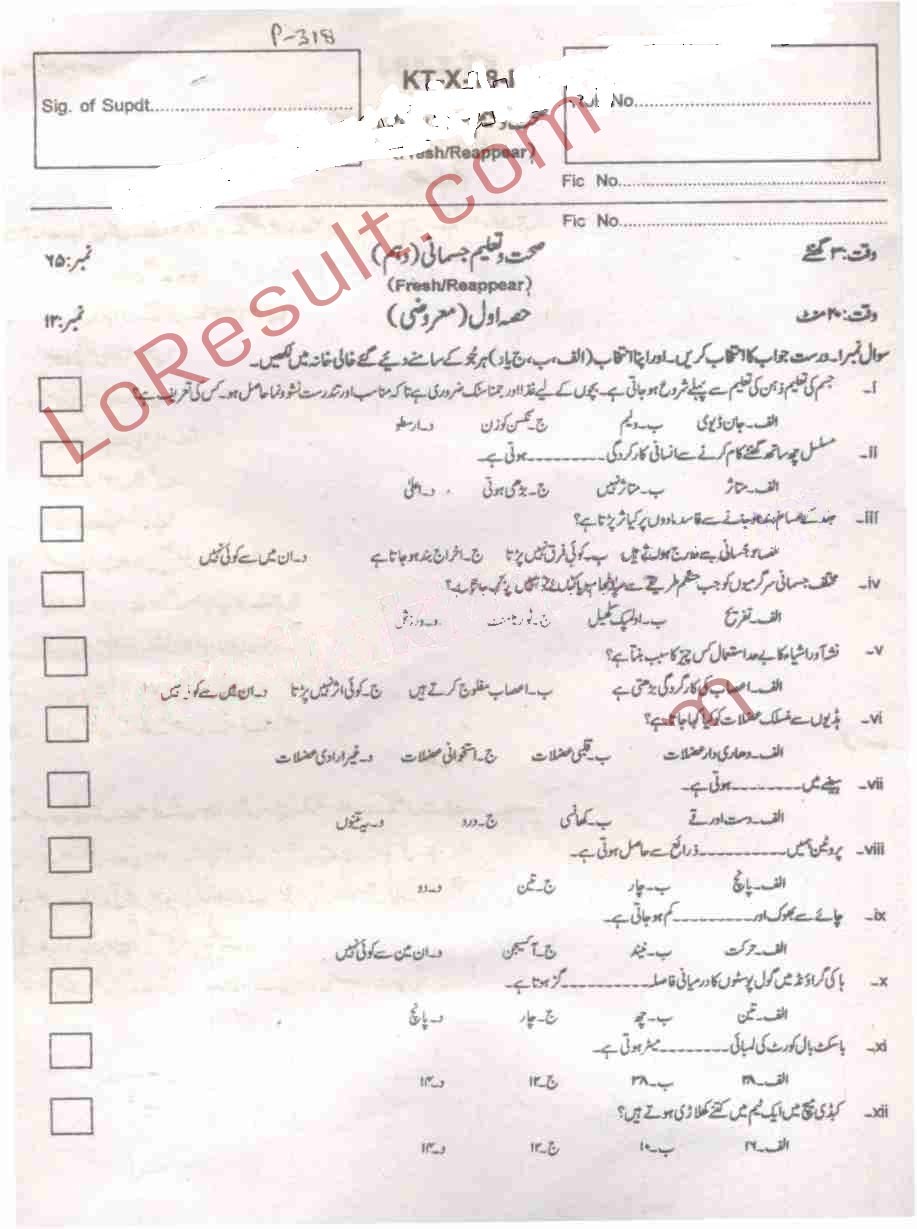 P-318
KT-X-18-I
Sig. of Supdt.................................
No.................................
(Fresh/Reappear)
Fic No.................................
Fic No.................................
وقت: ۳ گھنٹے صحت و تعلیم جسمانی (دہم) نمبر: ۶۵
(Fresh/Reappear)
وقت: ۲۰ منٹ حصہ اول (معروضی) نمبر: ۱۳
سوال نمبر ا۔ درست جواب کا انتخاب کریں۔ اور اپنا انتخاب (الف، ب، ج یا د) ہر جُز کے سامنے دیئے گئے خالی خانہ میں لکھیں۔
i۔ جسم کی تعلیم ذہن کی تعلیم سے پہلے شروع ہو جاتی ہے۔ بچوں کے لیے غذا اور جمناسٹک ضروری ہے تا کہ مناسب اور تندرست نشو و نما حاصل ہو۔ کس کی تعریف ہے؟
الف۔ جان ڈیوی ب۔ ولیم ج۔ نکسن کوزن د۔ ارسطو
ii۔ مسلسل چھ سات گھنٹے کام کرنے سے انسانی کارکردگی ---------- ہوتی ہے۔
الف۔ متاثر ب۔ متاثر نہیں ج۔ بڑھی ہوتی د۔ اعلیٰ
iii۔ جلد کے مسام بند ہو جانے سے فاسد مادوں پر کیا اثر پڑتا ہے؟
ب۔ کوئی فرق نہیں پڑتا ج۔ اخراج بند ہو جاتا ہے د۔ ان میں سے کوئی نہیں
iv۔ مختلف جسمانی سرگرمیوں کو جب منظم طریقے سے
الف۔ تفریح ب۔ اولمپک کھیل ج۔ ٹورنامنٹ د۔ ورزش
v۔ نشہ آور اشیاء کا بے جا استعمال کس چیز کا سبب بنتا ہے؟
الف۔ اعصاب کی کارگردگی بڑھتی ہے ب۔ اعصاب مفلوج کرتے ہیں ج۔ کوئی اثر نہیں پڑتا د۔ ان میں سے کوئی نہیں
vi۔ ہڈیوں سے منسلک عضلات کو کیا کہا جاتا ہے؟
الف۔ دھاری دار عضلات ب۔ قلبی عضلات ج۔ استخوانی عضلات د۔ غیر ارادی عضلات
vii۔ ہیضے میں ---------- ہوتی ہے۔
الف۔ دست اور قے ب۔ کھانسی ج۔ درد د۔ یہ تینوں
viii۔ پروٹین ہمیں ---------- ذرائع سے حاصل ہوتی ہے۔
الف۔ پانچ ب۔ چار ج۔ تین د۔ دو
ix۔ چائے سے بھوک اور ---------- کم ہو جاتی ہے۔
الف۔ حرکت ب۔ نیند ج۔ آکسیجن د۔ ان مین سے کوئی نہیں
x۔ ہاکی گراؤنڈ میں گول پوسٹوں کا درمیانی فاصلہ ---------- گز ہوتا ہے۔
الف۔ تین ب۔ چھ ج۔ چار د۔ پانچ
xi۔ باسکٹ بال کورٹ کی لمبائی ---------- میٹر ہوتی ہے۔
الف۔ ۲۸ ب۔ ۳۸ ج۔ ۱۲ د۔ ۱۴
xii۔ کبڈی میچ میں ایک ٹیم میں کتنے کھلاڑی ہوتے ہیں؟
الف۔ ۲۶ ب۔ ۱۰ ج۔ ۱۲ د۔ ۱۴
LoResult.com
m